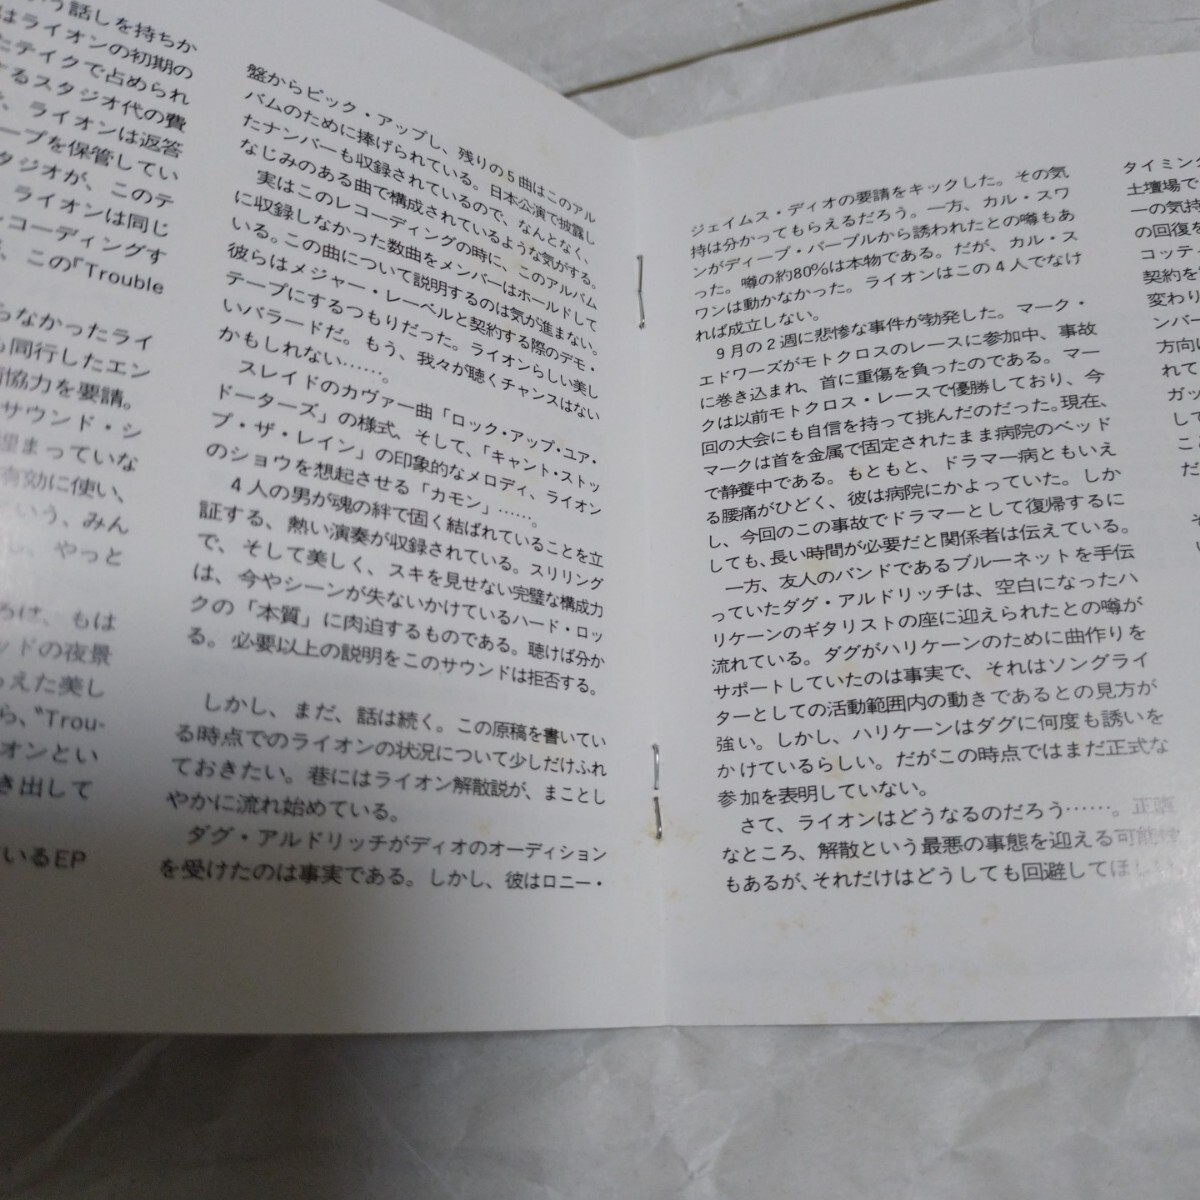 いう話しを持ちか
はライオンの初期の
たテイクで占められ
するスタジオ代の費
、ライオンは返答
ープを保管してい
タジオが、このテ
、ライオンは同じ
レコーディングす
、この『Trouble
らなかったライ
も同行したエン
協力を要請。
サウンド・シ
埋まっていな
有効に使い、
いう、みん
し、やっと
もは
ッドの夜景
らえた美し
ら、〝Trou-
オンとい
き出して
いるEP
盤からピック・アップし、残りの5曲はこのアル
バムのために捧げられている。日本公演で披露し
たナンバーも収録されているので、なんとなく、
なじみのある曲で構成されているような気がする。
実はこのレコーディングの時に、このアルバム
に収録しなかった数曲をメンバーはホールドして
いる。この曲について説明するのは気が進まない。
彼らはメジャー・レーベルと契約する際のデモ・
テープにするつもりだった。ライオンらしい美し
いバラードだ。もう、我々が聴くチャンスはない
かもしれない……。
スレイドのカヴァー曲「ロック・アップ・ユア・
ドーターズ」の様式、そして、「キャント・ストッ
プ・ザ・レイン」の印象的なメロディ、ライオン
のショウを想起させる「カモン」……。
4人の男が魂の絆で固く結ばれていることを立
証する、熱い演奏が収録されている。スリリング
で、そして美しく、スキを見せない完璧な構成力
は、今やシーンが失ないかけているハード・ロッ
クの「本質」に肉迫するものである。聴けば分か
る。必要以上の説明をこのサウンドは拒否する。
しかし、まだ、話は続く。この原稿を書いてい
る時点でのライオンの状況について少しだけふれ
ておきたい。巷にはライオン解散説が、まことし
やかに流れ始めている。
ダグ・アルドリッチがディオのオーディション
を受けたのは事実である。しかし、彼はロニー・
ジェイムス・ディオの要請をキックした。その気
持は分かってもらえるだろう。一方、カル・スワ
ンがディープ・パープルから誘われたとの噂もあ
った。噂の約80%は本物である。だが、カル・ス
ワンは動かなかった。ライオンはこの4人でなけ
れば成立しない。
9月の2週に悲惨な事件が勃発した。マーク・
エドワーズがモトクロスのレースに参加中、事故
に巻き込まれ、首に重傷を負ったのである。マー
クは以前モトクロス・レースで優勝しており、今
回の大会にも自信を持って挑んだのだった。現在、
マークは首を金属で固定されたまま病院のベッド
で静養中である。もともと、ドラマー病ともいえ
る腰痛がひどく、彼は病院にかよっていた。しか
し、今回のこの事故でドラマーとして復帰するに
しても、長い時間が必要だと関係者は伝えている。
一方、友人のバンドであるブルーネットを手伝
っていたダグ・アルドリッチは、空白になったハ
リケーンのギタリストの座に迎えられたとの噂が
流れている。ダグがハリケーンのために曲作りを
サポートしていたのは事実で、それはソングライ
ターとしての活動範囲内の動きであるとの見方が
強い。しかし、ハリケーンはダグに何度も誘いを
かけているらしい。だがこの時点ではまだ正式な
参加を表明していない。
さて、ライオンはどうなるのだろう……。正直
なところ、解散という最悪の事態を迎える可能性
もあるが、それだけはどうしても回避してほしい
タイミング
土壇場で
ーの気持
の回復を
コッティ
契約を
変わり
ンバー
方向に
れて
ガッ
して
こ
だ
そ
い